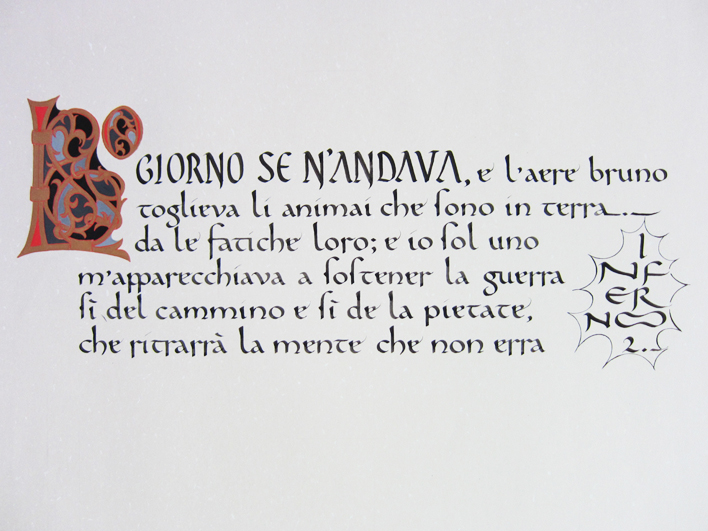 LO GIORNO SE N'ANDAVA, e l'aere bruno
toglieva li animai che sono in terra.
da le fatiche loro; e io sol uno
m'apparecchiava a sostener la guerra
sì del cammino e sì de la pietate,
che ritrarrà la mente che non erra
I
NF
ER
NO
2.